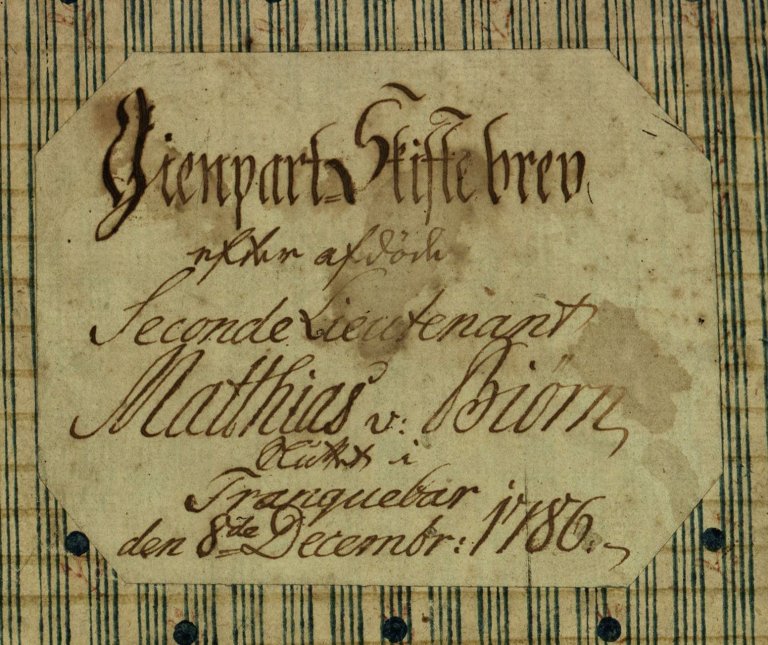 Gienpart Skiftebrev
efter afdöde
Seconde Lieutenant
Matthias v: Biørn,
Sluttet i
Tranquebar
den 8de Decembr: 1786.